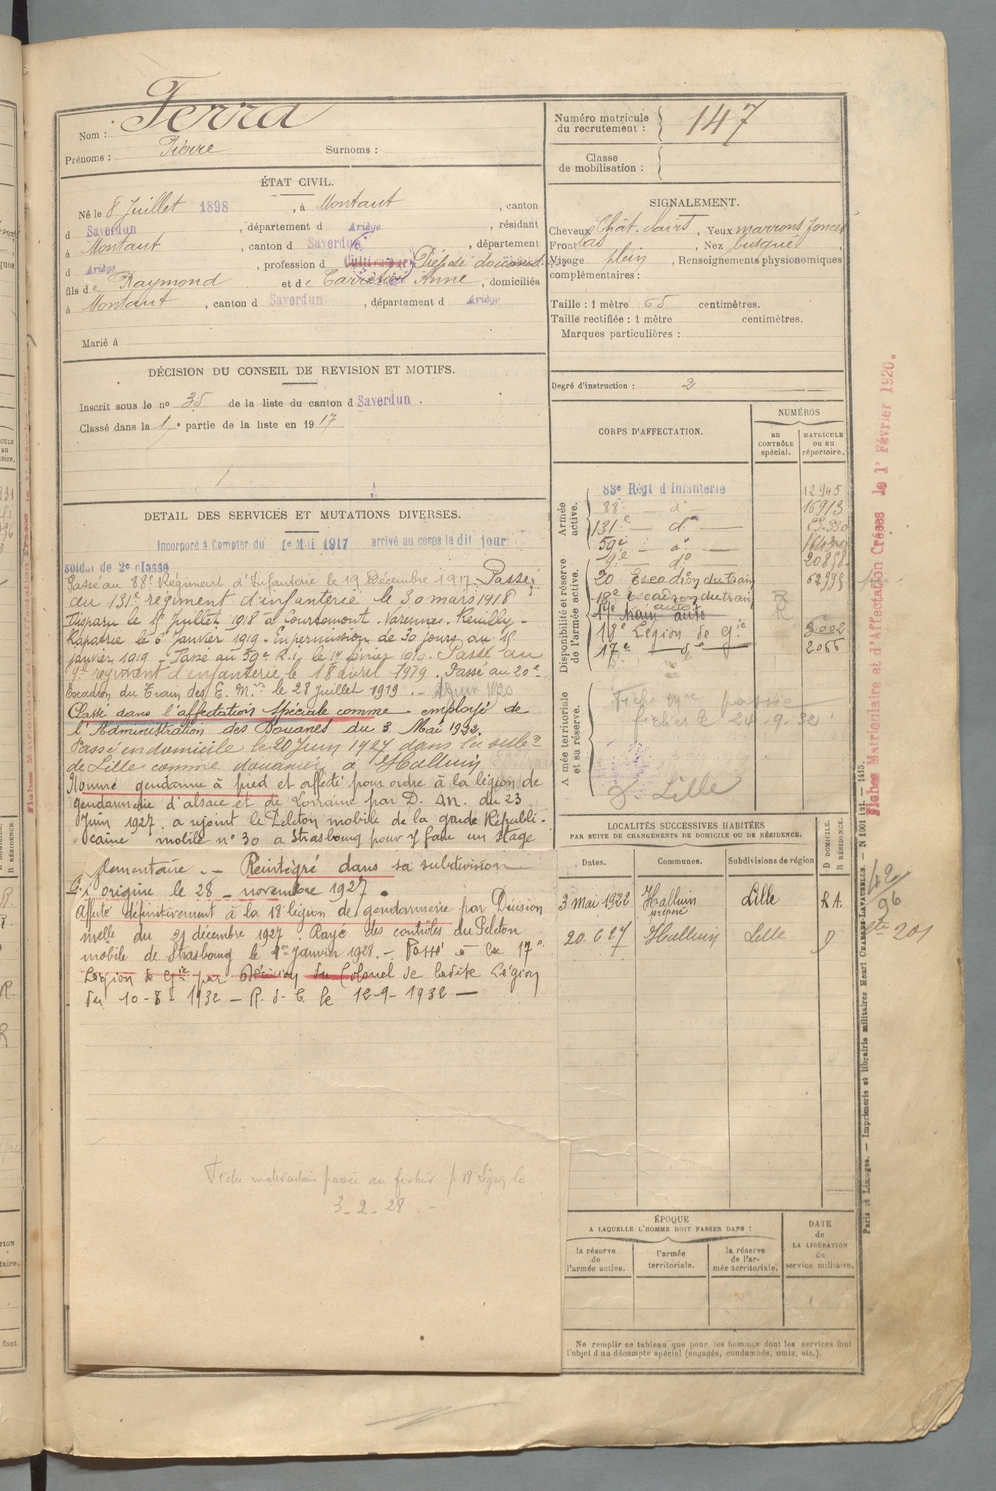 Nom : Ferra
Prénoms : Pierre Surnoms :
Numéro matricule du recrutement : 147
Classe de mobilisation :
ÉTAT CIVIL.
Né le 8 Juillet 1898, à Montaut, canton
d Saverdun, département d Ariège, résidant
à Montaut, canton d Saverdun, département
d Ariège, profession d Cultivateur Prép. de douanes
fils de Raymond et de Anne, domiciliés
à Montaut, canton d Saverdun, département d Ariège
Marié à
SIGNALEMENT.
Cheveux Chât. , Yeux marrons foncés
Front , Nez busqué
Visage plein , Renseignements physionomiques
complémentaires :
Taille : 1 mètre 65 centimètres.
Taille rectifiée : 1 mètre centimètres.
Marques particulières :
Degré d'instruction : 2
DÉCISION DU CONSEIL DE REVISION ET MOTIFS.
Inscrit sous le no 35 de la liste du canton d Saverdun .
Classé dans la 1re partie de la liste en 1917.
DETAIL DES SERVICES ET MUTATIONS DIVERSES.
Incorporé à Compter du 1er Mai 1917 arrivé au corps le dit jour
soldat de 2e classe
Passé au 88e Régiment d'Infanterie le 19 Décembre 1917. Passé
au 131e régiment d'infanterie le 30 mars 1918
Disparu le 15 Juillet 1918 à Courtemont-Varennes. Reuilly -
Rapatrié le 6 Janvier 1919. En permission de 30 jours au 15
Janvier 1919 - Passé au 59e R.I. le 1er février 1919. Passé au
9e régiment d'infanterie le 18 avril 1919. Passé au 20e
Escadron du Train des E. Mres le 28 Juillet 1919. -
Classé dans l'affectation spéciale comme employé de
l'Administration des Douanes du 3 Mai 1922.
Passé en domicile le 20 Juin 1927 dans la subdon
de Lille comme douanier à Halluin
Nommé gendarme à pied et affecté pour ordre à la légion de
gendarmerie d'alsace et de Lorraine par D. M. du 23
Juin 1927. a rejoint le Peleton mobile de la garde Républi-
caine mobile no 30 à Strasbourg pour y faire un stage
élémentaire. - Réintégré dans sa subdivision
d'origine le 28 novembre 1927.
Affecté définitivement à la 18e légion de gendarmerie par Décision
mielle du 21 décembre 1927. Rayé des contrôles du Peleton
mobile de Strasbourg le 1er Janvier 1928. - Passé à la 17e
Légion de Gie par décision du Colonel de ladite Légion
du 10-8-1932 - R. d. C. le 12-9-1932 -
Fiche matriculaire passée au fichier 18 Légion le
3-2-28. -
CORPS D'AFFECTATION.
NUMÉROS
AU CONTRÔLE spécial.
MATRICULE ou au répertoire.
Armée active.
83e Régt d'Infanterie 12945
88e - do 16913
131e - do -
59e - do
9e - do 20858
Disponibilité et réserve de l'armée active.
20 Escadron du train
18e Escadron du train R
18e Légion de Gie 3002
17e - do - 2066
Armée territoriale et sa réserve.
Fiche mre passée
fichier le 24-9-32
Lille
LOCALITÉS SUCCESSIVES HABITÉES
PAR SUITE DE CHANGEMENTS DE DOMICILE OU DE RÉSIDENCE.
Dates. Communes. Subdivisions de région D DOMICILE. R RÉSIDENCE.
3 mai 1922 Halluin Lille R A.
préposé
20.6.27 Halluin Lille D
ÉPOQUE
A LAQUELLE L'HOMME DOIT PASSER DANS :
la réserve de l'armée active.
l'armée territoriale.
la réserve de l'armée territoriale.
DATE de LA LIBÉRATION du service militaire.
Ne remplir ce tableau que pour les hommes dont les services font
l'objet d'un décompte spécial (engagés, condamnés, omis, etc.).
Fiches Matriculaire et d'Affectation Créées le 1er Février 1920.
Paris et Limoges. — Imprimerie et librairie militaires Henri CHARLES-LAVAUZELLE.
42
96
201